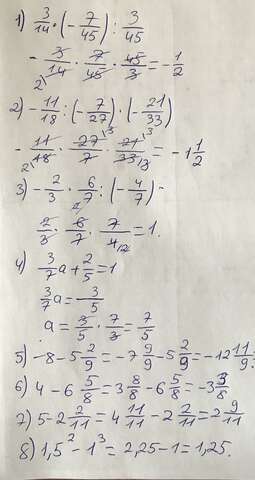 1) 3/14 · (- 7/45) : 3/45
- 3/14 · 7/45 · 45/3 = - 1/2
2) - 11/18 : (- 7/27) · (- 21/33)
- 11/18 · 27/7 · 21/33 = - 1 1/2
3) - 2/3 · 6/7 : (- 4/7) -
2/3 · 6/7 · 7/4 = 1.
4) 3/7 a + 2/5 = 1
3/7 a = 3/5
a = 3/5 · 7/3 = 7/5
5) -8 - 5 2/9 = -7 9/9 - 5 2/9 = -12 11/9
6) 4 - 6 5/8 = 3 8/8 - 6 5/8 = -3 3/8
7) 5 - 2 2/11 = 4 11/11 - 2 2/11 = 2 9/11
8) 1,5² - 1³ = 2,25 - 1 = 1,25.